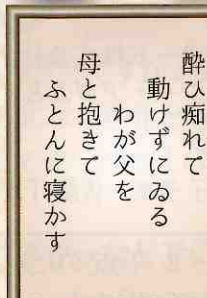 酔ひ痴れて
動けずにゐる
わが父を
母と抱きて
ふとんに寝かす